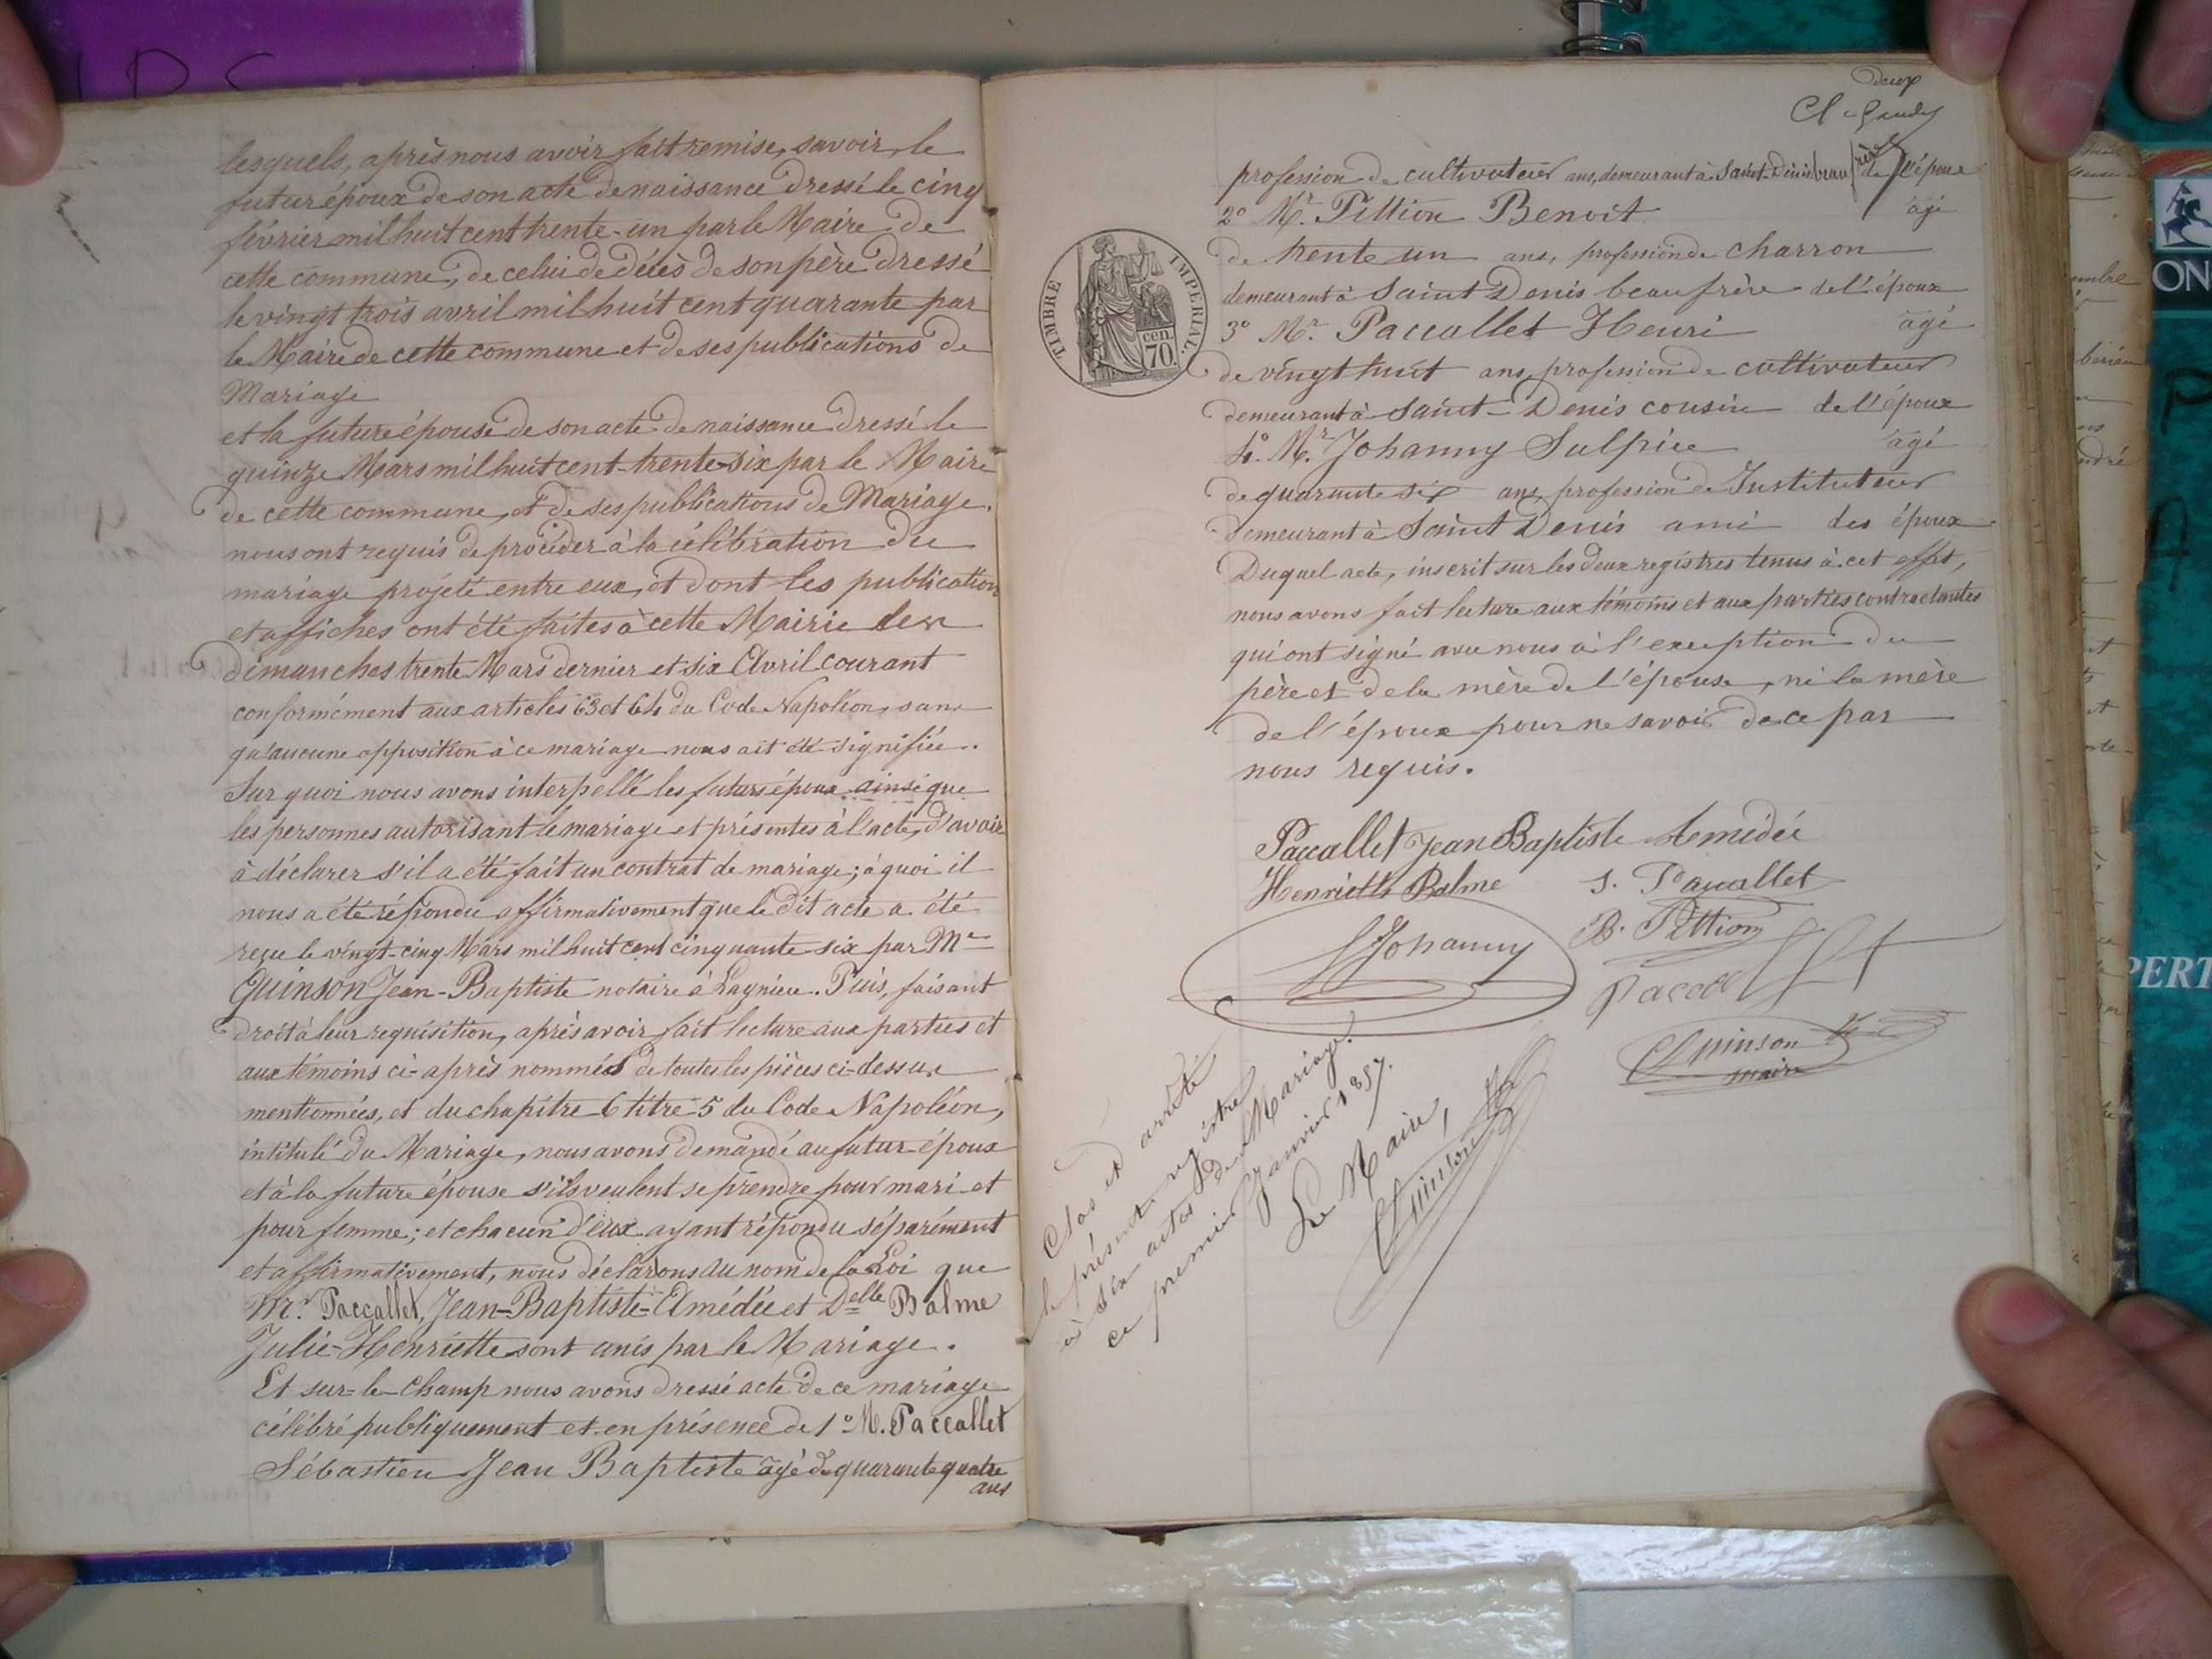 lesquels, après nous avoir fait remise, savoir, le
futur époux de son acte de naissance dressé le cinq
février mil huit cent trente-un par le Maire de
cette commune, de celui de décès de son père dressé
le vingt trois avril mil huit cent quarante par
le Maire de cette commune et de ses publications de
Mariage
et la future épouse de son acte de naissance dressé le
quinze Mars mil huit cent trente-six par le Maire
de cette commune, et de ses publications de Mariage.
nous ont requis de procéder à la célébration du
mariage projeté entre eux, et dont les publication
et affiches ont été faites à cette Mairie les
dimanches trente Mars dernier et six Avril courant
conformément aux articles 63 et 64 du Code Napoléon, sans
qu'aucune opposition à ce mariage nous ait été signifiée.
Sur quoi nous avons interpellé les futurs époux ainsi que
les personnes autorisant le mariage et présentes à l'acte, d'avoir
à déclarer s'il a été fait un contrat de mariage; à quoi il
nous a été répondu affirmativement que le dit acte a été
reçu le vingt-cinq Mars mil huit cent cinquante six par Me
Quinson Jean-Baptiste notaire à Lagnieu. Puis, faisant
droit à leur requisition, après avoir fait lecture aux parties et
aux témoins ci-après nommés de toutes les pièces ci-dessus
mentionnées, et du chapitre 6 titre 5 du Code Napoléon,
intitulé du Mariage, nous avons demandé au futur époux
et à la future épouse s'ils veulent se prendre pour mari et
pour femme; et chacun d'eux ayant répondu séparément
et affirmativement, nous déclarons au nom de la Loi que
Mr. Paccallet, Jean-Baptiste-Amédée et Delle Balme
Julie-Henriette sont unis par le Mariage.
Et sur-le-champ nous avons dressé acte de ce mariage
célébré publiquement et en présence de 1º M. Paccallet
Sébastien Jean Baptiste âgé de quarante quatre
ans
deux
profession de cultivateur ans, demeurant à Saint-Denis beau frère de l'époux
2º Mr. Pittion Benoit âgé
de trente un ans, profession de charron
demeurant à Saint Denis beau frère de l'époux
3º Mr. Paccallet Henri âgé
de vingt huit ans, profession de cultivateur
demeurant à Saint-Denis cousin de l'époux
4º. Mr. Johanny Sulpice âgé
de quarante six ans, profession de Instituteur
demeurant à Saint Denis ami des époux
Duquel acte, inscrit sur les deux registres tenus à cet effet,
nous avons fait lecture aux témoins et aux parties contractantes
qui ont signé avec nous à l'exception du
père et de la mère de l'épouse, ni la mère
de l'époux pour ne savoir de ce par
nous requis.
TIMBRE IMPERIAL.
cen.
70
Paccallet Jean Baptiste Amédée
Henriette Balme S. Paccallet
Johanny B. Pittion
Quinson
maire
Clos et arrêté
le présent registre
à six actes de Mariage.
ce premier Janvier 1857.
Le Maire,
Quinson
ON
PERT